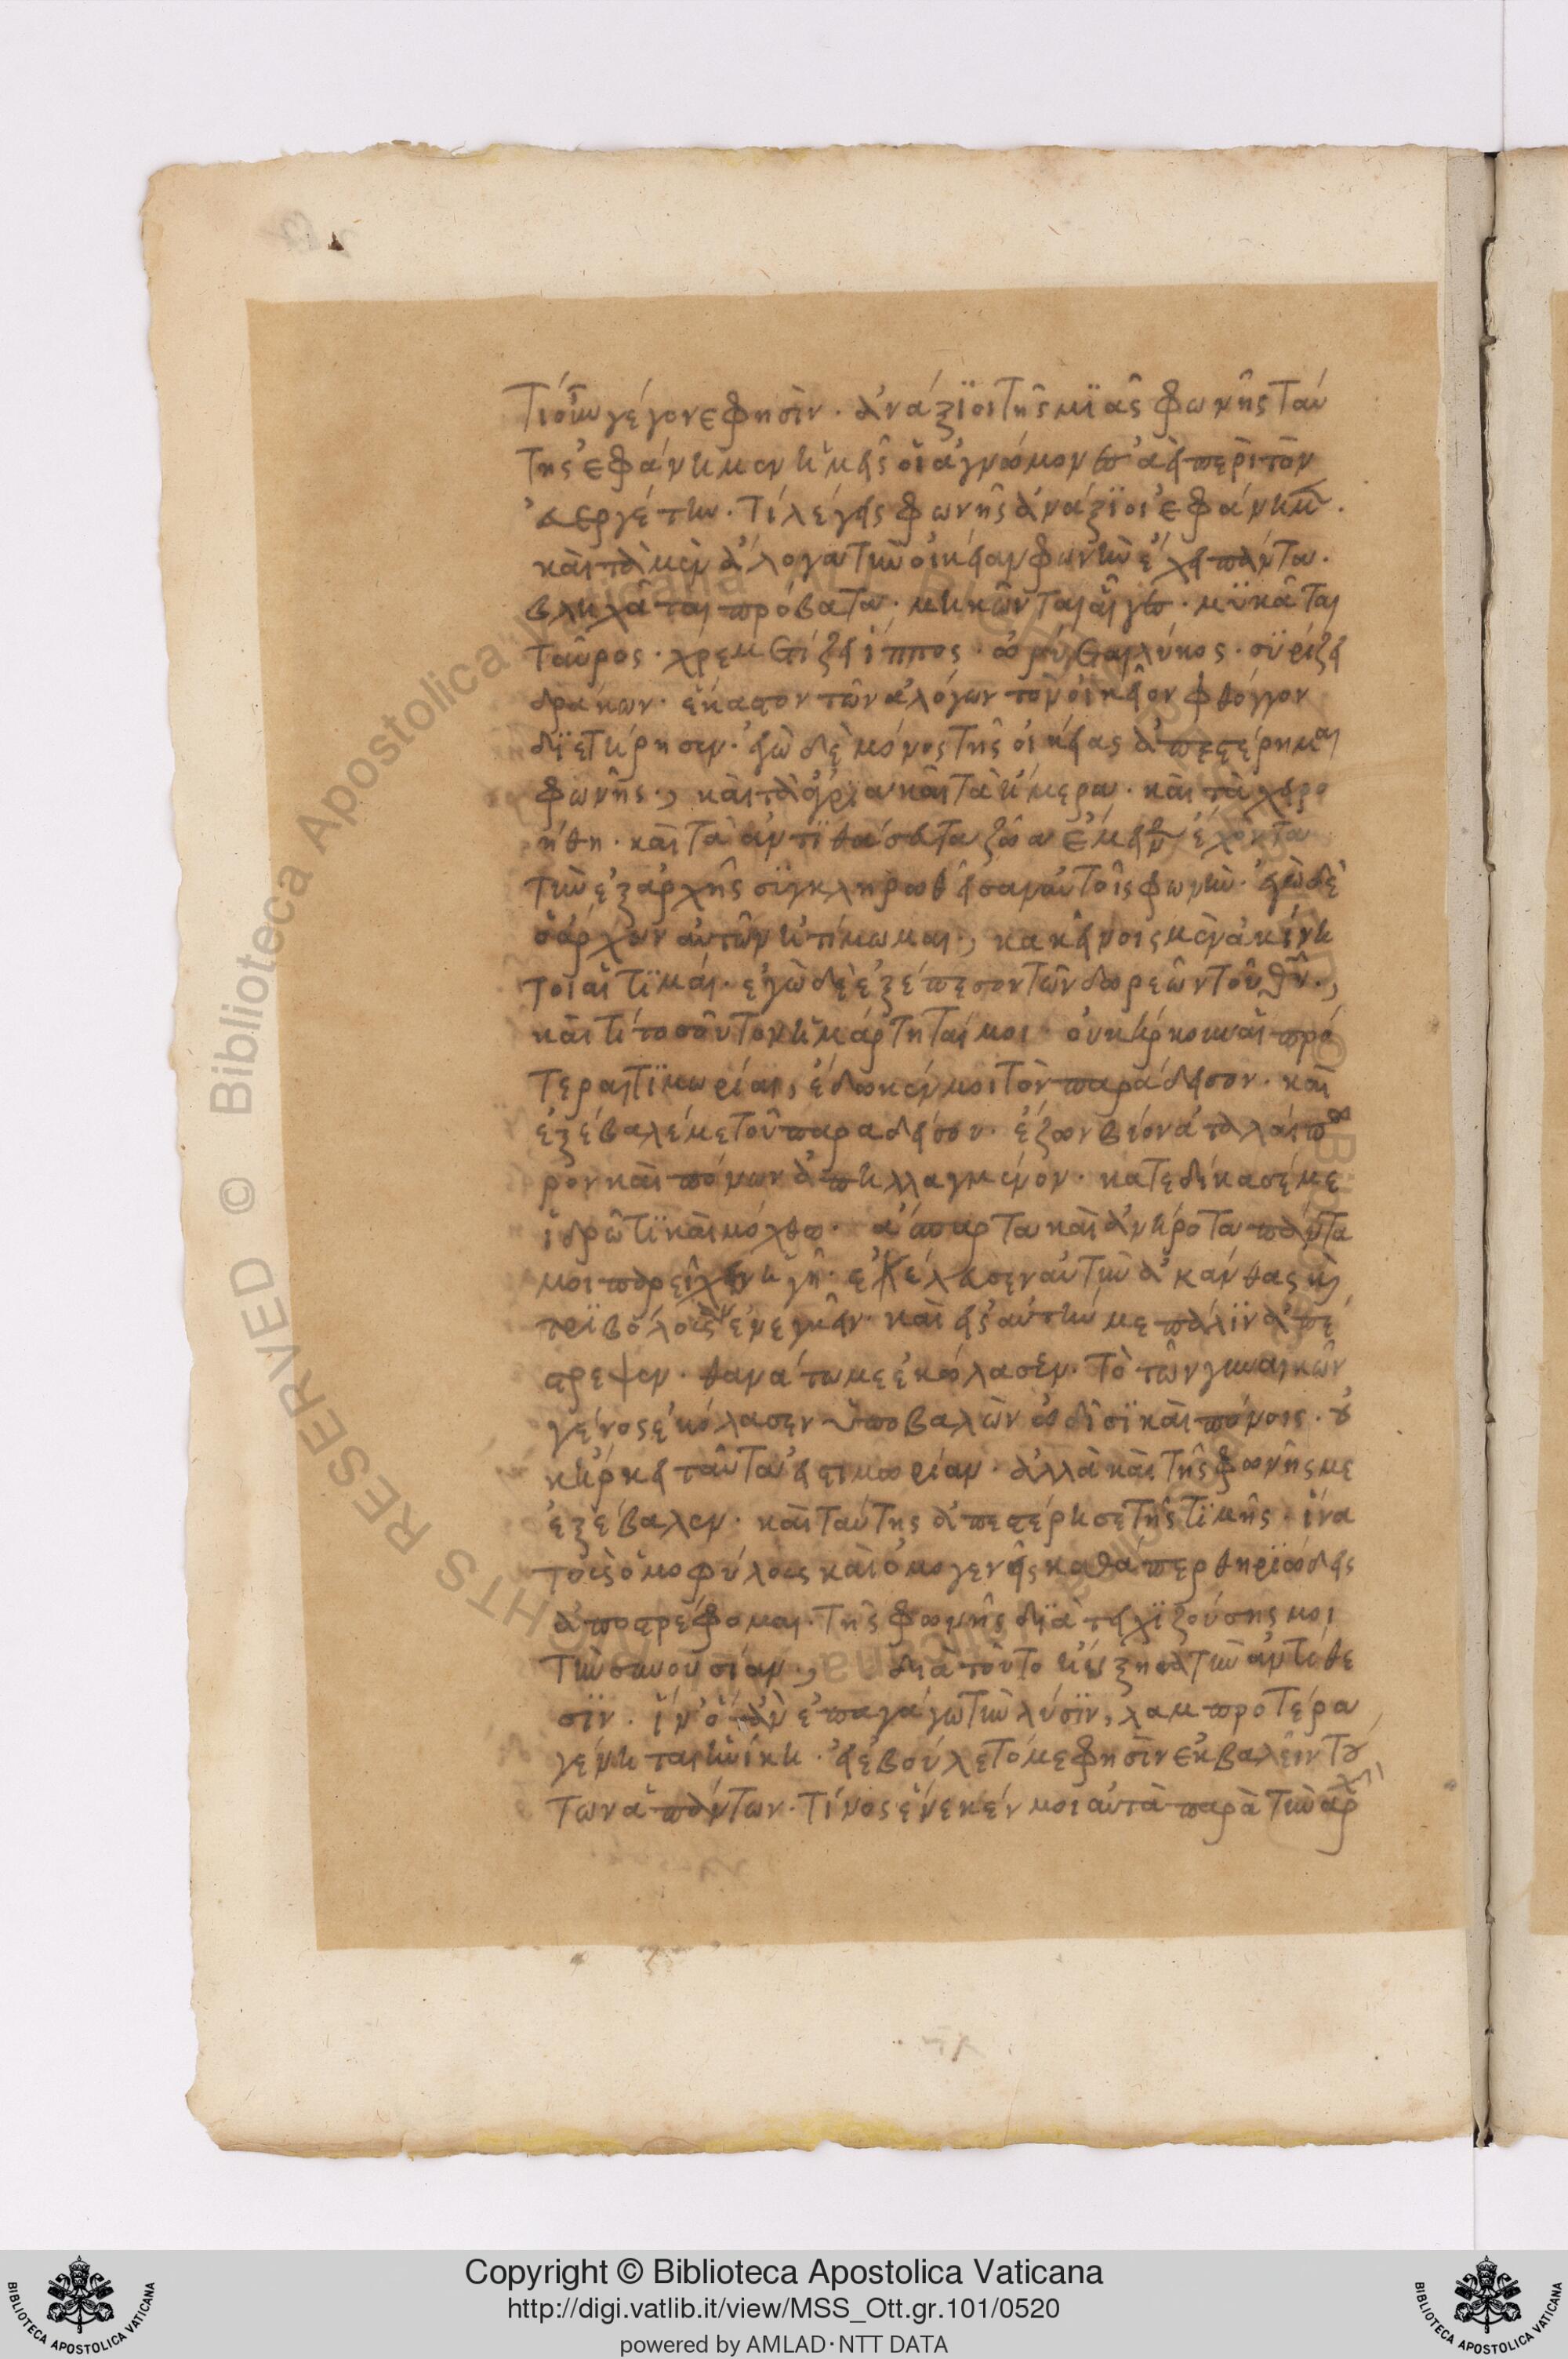 Τί οὖν γέγονε φησὶν · ἀνάξϊοι τῆς μϊᾶς φωνῆς ταύ
της ἐφάνημεν ἡμεῖς οἱ ἀγνώμονες ἀεὶ περὶ τὸν
εὐεργέτην · τί λέγεις φωνῆς ἀνάξϊοι ἐφάνημεν ·
καὶ τὰ μὲν ἄλογα τὴν οἰκείαν φωνὴν ἔχει πάντα ·
βληχᾶται πρόβατα · μηκῶνται αἶγες · μϋκᾶται
ταῦρος · χρεμετίζει ἵππος · ὠρύεται λύκος · σϋρίζει
δράκων · ἕκαστον τῶν ἀλόγων τὸν οἰκεῖον φθόγγον
δϊετήρησεν · ἐγὼ δὲ μόνος τῆς οἰκείας ἀπεστέρημαι
φωνῆς ·, καὶ τὰ ἄγρια καὶ τὰ ἥμερα · καὶ τὰ χειρο
ήθη · καὶ τὰ ἀντϊθάσευτα ζῶα ἔμεινεν ἔχοντα
τὴν ἐξ ἀρχῆς σϋγκληρωθεῖσαν αὐτοῖς φωνήν · ἐγὼ δὲ
ὁ ἄρχων αὐτῶν ἠτίμωμαι ·, κακείνοις μὲν ἀκίνη
τοι αἱ τϊμάι · ἐγὼ δὲ ἐξέπεσον τῶν δωρεῶν τοῦ θ̅υ̅ ·,
καὶ τί τοσοῦτον ἡμάρτηταί μοι · οὐκ ἤρκουν αἱ πρό
τεραι τϊμωρίαι, ἔδωκέν μοι τὸν παράδεισον · καὶ
ἐξέβαλέ με τοῦ παραδείσου · ἔζων βίον ἀταλάιπω
ρον καὶ πόνων ἀπηλλαγμένον · κατεδίκασέ με
ἱδρῶτϊ καὶ μόχθω · ἄσπαρτα καὶ ἀνήροτα πάντα
μοι παρεῖχεν ἡ γῆ · ἐκέλευσεν αὐτὴν ἀκάνθας κ(αὶ)
τρϊβόλους ἐνεγκεῖν · καὶ εἰς αὐτήν με πάλϊν ἀπέ
στρεψεν · θανάτω με ἐκόλασεν · τὸ τῶν γυναικῶν
γένος ἐκόλασεν ὑποβαλὼν ὠδῖσϊ καὶ πόνοις · οὐ
κ ἤρκει ταῦτα εἰς τιμωρίαν · ἀλλὰ καὶ τῆς φωνῆς με
ἐξέβαλεν · καὶ ταύτης ἀπεστέρησε τῆς τϊμῆς · ἵνα
τοὺς ὁμοφύλους καὶ ὁμογενεῖς καθάπερ θηρϊώδεις
ἀποστρέφομαι · τῆς φωνῆς δϊατειχϊζούσης μοι
τὴν συνουσίαν ·, διὰ τοῦτο ηὔξησα τὴν ἀντίθε
σϊν · ἵν᾽ ὅταν ἐπαγάγω τὴν λύσϊν, λαμπροτέρα
γένηται ἡ νίκη · εἰ ἐβούλετό με φησὶν ἐκβαλεῖν τού
των ἁπάντων · τίνος ἕνεκέν μοι αὐτὰ παρὰ τὴν ἀρχὴν
Copyright © Biblioteca Apostolica Vaticana
http://digi.vatlib.it/view/MSS_Ott.gr.101/0520
powered by AMLAD·NTT DATA